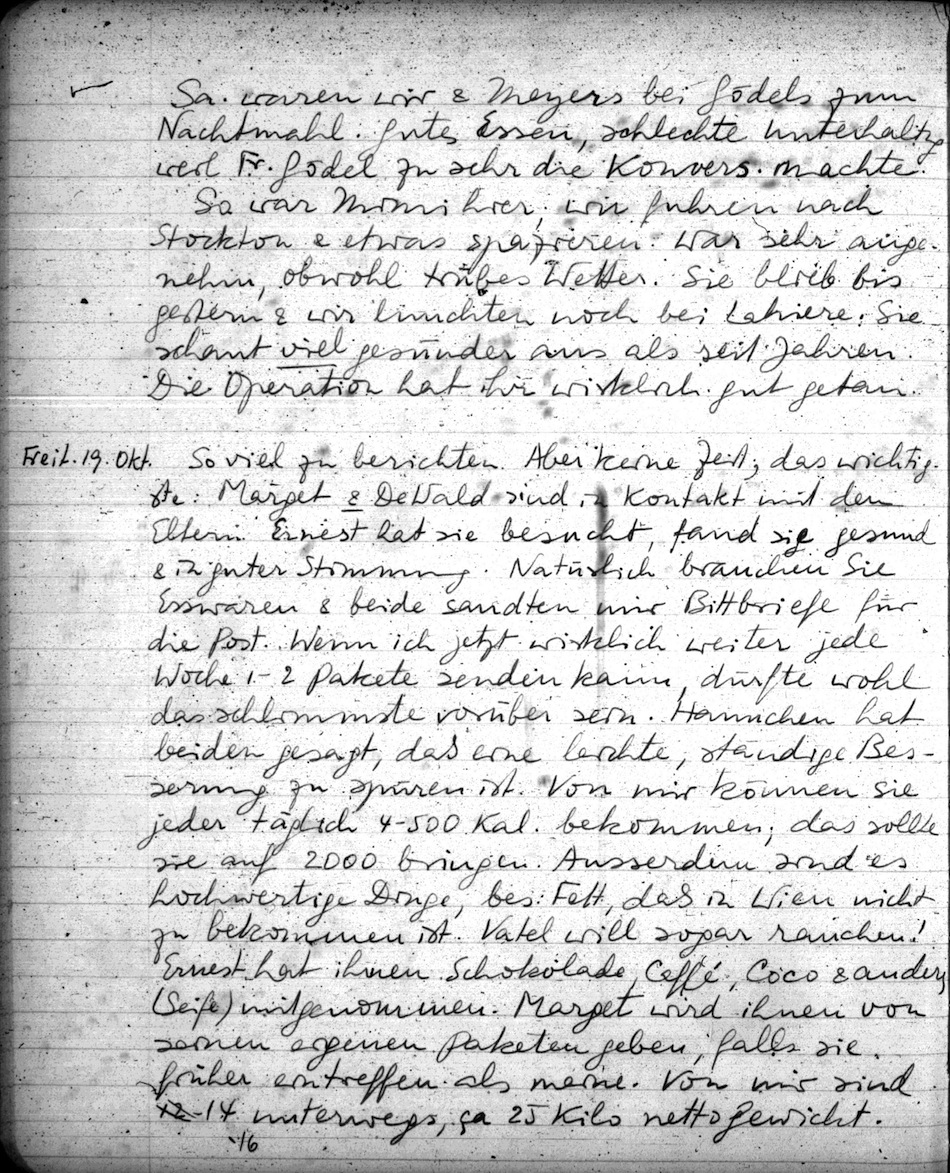 Sa. waren wir & Meyers bei Gödels zum
Nachtmahl. Gutes Essen, schlechte Unterhaltg
weil Fr. Gödel zu sehr die Konvers. machte.
So war Mimi hier, wir fuhren nach
Stockton & etwas spazieren. War sehr ange-
nehm, obwohl trübes Wetter. Sie blieb bis
gestern & wir lunchten noch bei Lahiere. Sie
schaut viel gesünder aus als seit Jahren.
Die Operation hat ihr wirklich gut getan.
Freit. 19. Okt. So viel zu berichten. Aber keine Zeit; das wichtig-
ste: Marget & DeWald sind in Kontakt mit den
Eltern. Ernest hat sie besucht, fand sie gesund
& in guter Stimmung. Natürlich brauchen Sie
Esswaren & beide sandten mir Bittbriefe für
die Post. Wenn ich jetzt wirklich weiter jede
Woche 1-2 Pakete senden kann, dürfte wohl
das schlimmste vorüber sein. Hannchen hat
beiden gesagt, daß eine leichte, ständige Bes-
serung zu spüren ist. Von mir können sie
jeder täglich 4-500 Kal. bekommen, das sollte
sie auf 2000 bringen. Ausserdem sind es
hochwertige Dinge, bes. Fett, daß in Wien nicht
zu bekommen ist. Vatel will sogar rauchen!
Ernest hat ihnen Schokolade, Caffé, Coco & andery
(Seife) mitgenommen. Marget wird ihnen von
seinen eigenen Paketen geben, falls sie
früher eintreffen als meine. Von mir sind
12-14 unterwegs, ça 25 Kilo nettogewicht.
16